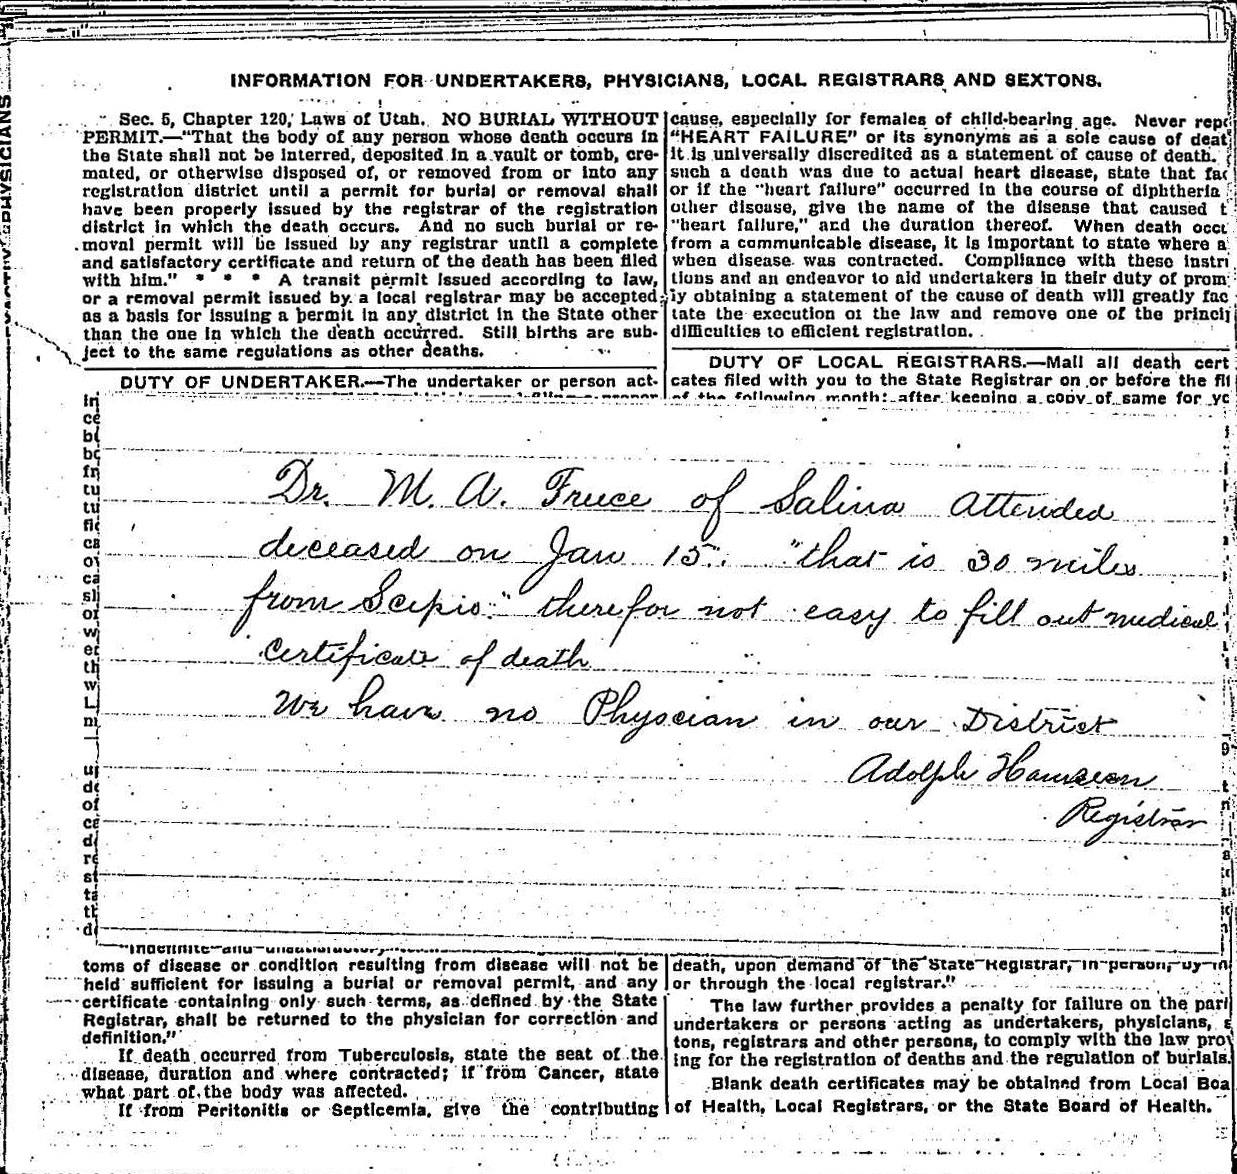 PHYSICIANS
INFORMATION FOR UNDERTAKERS, PHYSICIANS, LOCAL REGISTRARS AND SEXTONS.
Sec. 5, Chapter 120, Laws of Utah. NO BURIAL WITHOUT
PERMIT.—"That the body of any person whose death occurs in
the State shall not be interred, deposited in a vault or tomb, cre-
mated, or otherwise disposed of, or removed from or into any
registration district until a permit for burial or removal shall
have been properly issued by the registrar of the registration
district in which the death occurs. And no such burial or re-
moval permit will be issued by any registrar until a complete
and satisfactory certificate and return of the death has been filed
with him." * * * A transit permit issued according to law,
or a removal permit issued by a local registrar may be accepted
as a basis for issuing a permit in any district in the State other
than the one in which the death occurred. Still births are sub-
ject to the same regulations as other deaths.
DUTY OF UNDERTAKER.—The undertaker or person act-
cause, especially for females of child-bearing age. Never rep
"HEART FAILURE" or its synonyms as a sole cause of deat
it is universally discredited as a statement of cause of death.
such a death was due to actual heart disease, state that fac
or if the "heart failure" occurred in the course of diphtheria
other disease, give the name of the disease that caused t
"heart failure," and the duration thereof. When death occu
from a communicable disease, it is important to state where a
when disease was contracted. Compliance with these instri
tions and an endeavor to aid undertakers in their duty of prom
ly obtaining a statement of the cause of death will greatly fac
tate the execution of the law and remove one of the princip
difficulties to efficient registration.
DUTY OF LOCAL REGISTRARS.—Mail all death cert
cates filed with you to the State Registrar on or before the fif
of the following month; after keeping a copy of same for yo
Dr. M. A. Freece of Salina Attended
deceased on Jan 15". "that is 30 miles
from Scipio." therefor not easy to fill out medical
certificate of death
We have no Physcian in our District
Adolph Hansen
Registrar
indefinite and unsatisfactory
toms of disease or condition resulting from disease will not be
held sufficient for issuing a burial or removal permit, and any
certificate containing only such terms, as defined by the State
Registrar, shall be returned to the physician for correction and
definition."
If death occurred from Tuberculosis, state the seat of the
disease, duration and where contracted; if from Cancer, state
what part of the body was affected.
If from Peritonitis or Septicemia, give the contributing
death, upon demand of the State Registrar, in person, by
or through the local registrar."
The law further provides a penalty for failure on the part
undertakers or persons acting as undertakers, physicians, s
tons, registrars and other persons, to comply with the law prov
ing for the registration of deaths and the regulation of burials.
Blank death certificates may be obtained from Local Boa
of Health, Local Registrars, or the State Board of Health.